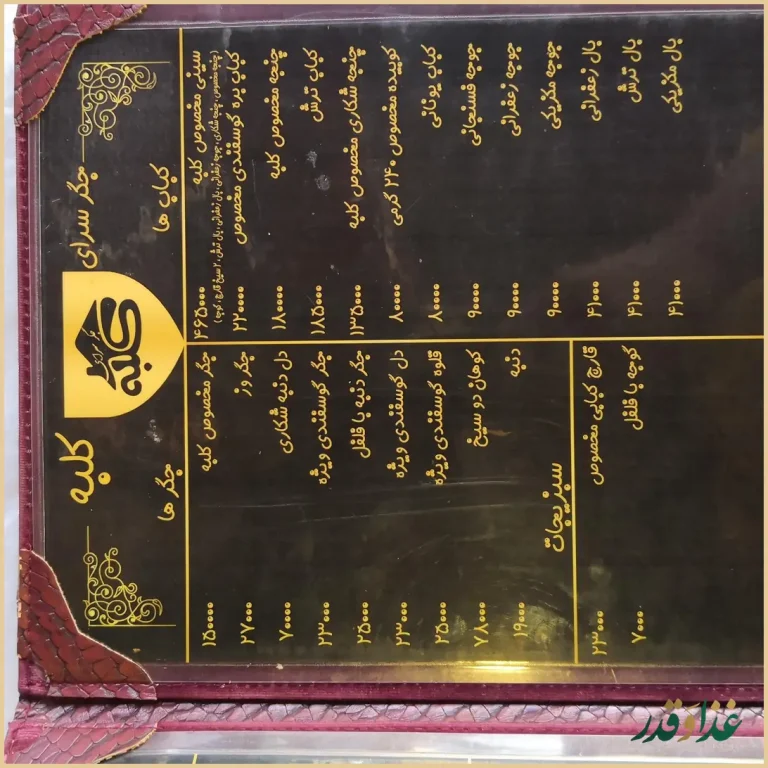 کلبه جگر سرای
کلبه
جگر سرای
جگر ها
جگر مخصوص کلبه ۱۵۰۰۰
جگر وز ۲۷۰۰۰
دل دنبه شکاری ۷۰۰۰۰
جگر گوسفندی ویژه ۲۳۰۰۰
جگر دنبه با فلفل ۲۵۰۰۰
دل گوسفندی ویژه ۲۳۰۰۰
قلوه گوسفندی ویژه ۲۵۰۰۰
کوهان دو سیخ ۷۸۰۰۰
دنبه ۱۹۰۰۰
سبزیجات
قارچ کبابی مخصوص ۲۳۰۰۰
گوجه با فلفل ۷۰۰۰
کباب ها
سینی مخصوص کلبه ۴۶۵۰۰۰
(چنجه مخصوص، چنجه شکاری، جوجه زعفرانی، بال زعفرانی، بال ترش، ۲ سیخ قارچ، گوجه)
کباب بره گوسفندی مخصوص ۲۲۰۰۰۰
چنجه مخصوص کلبه ۱۸۰۰۰۰
کباب ترش ۱۸۵۰۰۰
چنجه شکاری مخصوص کلبه ۱۳۵۰۰۰
کوبیده مخصوص ۲۴۰ گرمی ۸۰۰۰۰
کباب یونانی ۸۰۰۰۰
جوجه فسنجانی ۹۰۰۰۰
جوجه زعفرانی ۹۰۰۰۰
جوجه مکزیکی ۹۰۰۰۰
بال زعفرانی ۴۱۰۰۰
بال ترش ۴۱۰۰۰
بال مکزیکی ۴۱۰۰۰
غذا و قدر